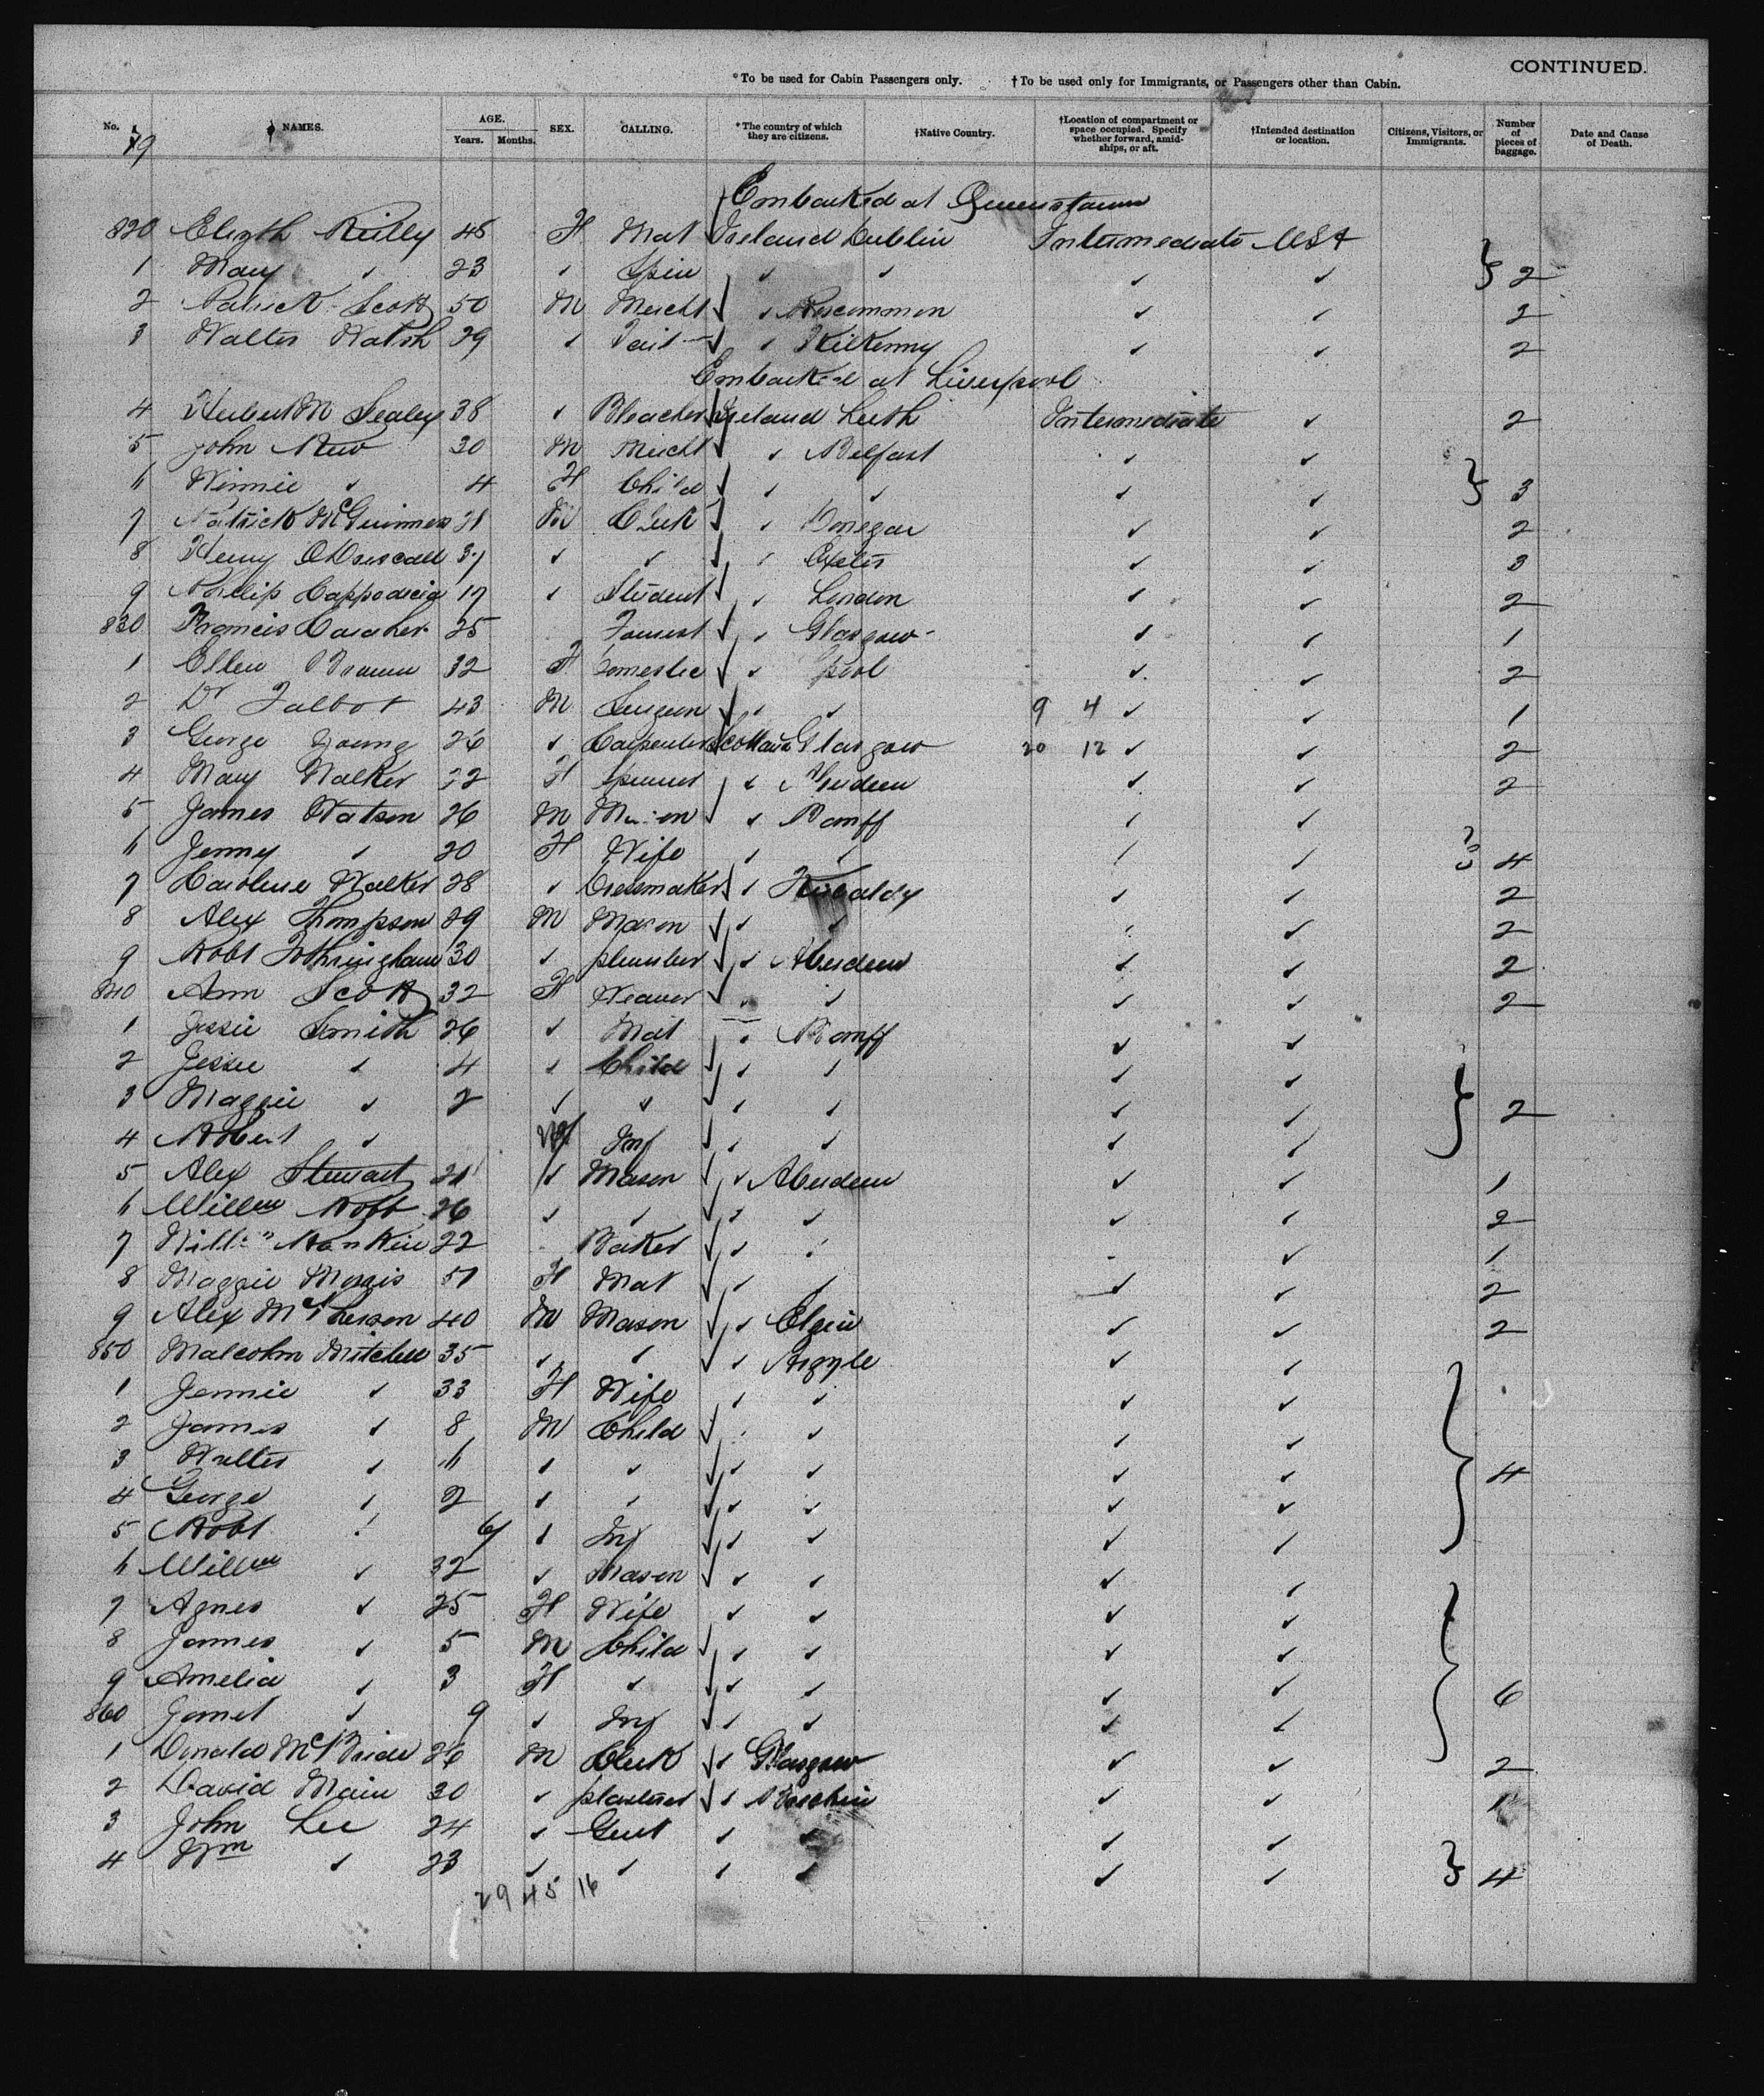 CONTINUED.
*To be used for Cabin Passengers only. †To be used only for Immigrants, or Passengers other than Cabin.
No. NAMES. AGE. Years. Months. SEX. CALLING. *The country of which they are citizens. †Native Country. †Location of compartment or space occupied. Specify whether forward, amidships, or aft. †Intended destination or location. Citizens, Visitors, or Immigrants. Number of pieces of baggage. Date and Cause of Death.
79
Embarked at Queenstown
820 Elizth Reilly 45 F Mat Ireland Dublin Intermediate USA
1 Mary ✓ 23 ✓ Spin ✓ ✓ ✓ ✓ } 2
2 Patrick Scott 50 M Mercht ✓ Roscommon ✓ ✓ 2
3 Walter Walsh 39 ✓ ✓ Kilkenny ✓ ✓ 2
Embarked at Liverpool
4 Sealey 38 ✓ Bleacher Ireland Intermediate ✓ 2
5 John 30 M Mercht ✓ Belfast ✓ ✓
6 Winnie ✓ 4 F Child ✓ ✓ ✓ ✓ } 3
7 Patrick McGuinness 21 M Clerk ✓ Donegal ✓ ✓ 2
8 Henry ODriscoll 37 ✓ ✓ ✓ Exeter ✓ ✓ 3
9 Philip 17 ✓ Student ✓ London ✓ ✓ 2
830 Francis 25 ✓ Glasgow ✓ ✓ 1
1 Ellen Brown 32 F Domestic ✓ Lpool ✓ ✓ 2
2 Dr Talbot 43 M Surgeon ✓ ✓ 9 4 ✓ ✓ 1
3 George Young 26 ✓ Carpenter Scotland Glasgow 20 12 ✓ ✓ 2
4 Mary Walker 22 F Spinner ✓ Aberdeen ✓ ✓ 2
5 James Watson 26 M Mason ✓ Banff ✓ ✓
6 Jenny ✓ 20 F Wife ✓ ✓ ✓ ✓ } 4
7 Caroline Walker 28 ✓ Dressmaker ✓ Kircaldy ✓ ✓ 2
8 Alex Thompson 29 M Mason ✓ ✓ ✓ ✓ 2
9 Robt Fothringham 30 ✓ plumber ✓ Aberdeen ✓ ✓ 2
840 Ann Scott 32 F Weaver ✓ ✓ ✓ ✓ 2
1 Jessie Smith 26 ✓ Mat ✓ Banff ✓ ✓
2 Jessie ✓ 4 ✓ Child ✓ ✓ ✓ ✓
3 Maggie ✓ 2 ✓ ✓ ✓ ✓ ✓ ✓ } 2
4 Robert ✓ M Inf ✓ ✓ ✓ ✓
5 Alex Stewart 21 ✓ Mason ✓ Aberdeen ✓ ✓ 1
6 Willm Robb 26 ✓ ✓ ✓ ✓ ✓ ✓ 2
7 Willm Rankin 22 Baker ✓ ✓ ✓ 1
8 Maggie 51 F Mat ✓ ✓ ✓ ✓ 2
9 Alex McPherson 40 M Mason ✓ Elgin ✓ ✓ 2
850 Malcolm Mitchell 35 ✓ ✓ ✓ Argyle ✓ ✓
1 Jennie ✓ 33 F Wife ✓ ✓ ✓ ✓
2 James ✓ 8 M Child ✓ ✓ ✓ ✓
3 Walter ✓ 6 ✓ ✓ ✓ ✓ ✓ ✓ } 4
4 George ✓ 2 ✓ ✓ ✓ ✓ ✓ ✓
5 Robt ✓ 6 ✓ Inf ✓ ✓ ✓ ✓
6 Willm ✓ 32 ✓ Mason ✓ ✓ ✓ ✓
7 Agnes ✓ 25 F Wife ✓ ✓ ✓ ✓
8 James ✓ 5 M Child ✓ ✓ ✓ ✓
9 Amelia ✓ 3 F ✓ ✓ ✓ ✓ ✓ } 6
860 Janet ✓ 9 ✓ Inf ✓ ✓ ✓ ✓
1 Donald McBride 26 M Clerk ✓ Glasgow ✓ ✓ 2
2 David Main 30 ✓ plasterer ✓ Brechin ✓ ✓ 1
3 John Lee 24 ✓ Gent ✓ ✓ ✓ ✓
4 Wm ✓ 23 ✓ ✓ ✓ ✓ ✓ ✓ } 4
29 45 16